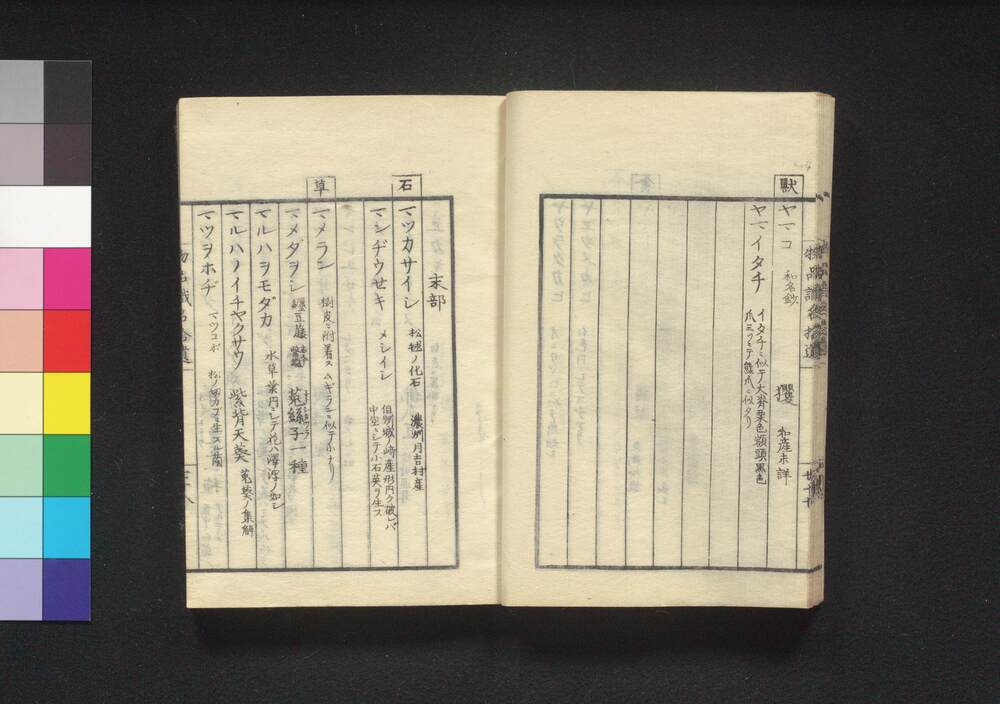 獣
ヤマコ 和名鈔 玃 和産未詳
ヤマイタチ イタチニ似テ大脊栗色額頭黒色
爪三ツニテ熊爪ニ似タリ
末部
石
マツカサイシ 松毬ノ化石 濃州月吉村産
マンヂウセキ メシイシ 但州城ノ崎産形円ク破レバ
中空ニシテ小石英ヲ生ス
草
マメラン 樹皮ニ附着ス ムギランニ似テ小ナリ
マメダヲシ 菟絲子一種
マルハヲモダカ 水草葉円ニシテ花ハ澤瀉ノ如シ
マルハノイチヤクサウ 紫背天葵 菟葵ノ集解
マツヲホヂ マツコボ